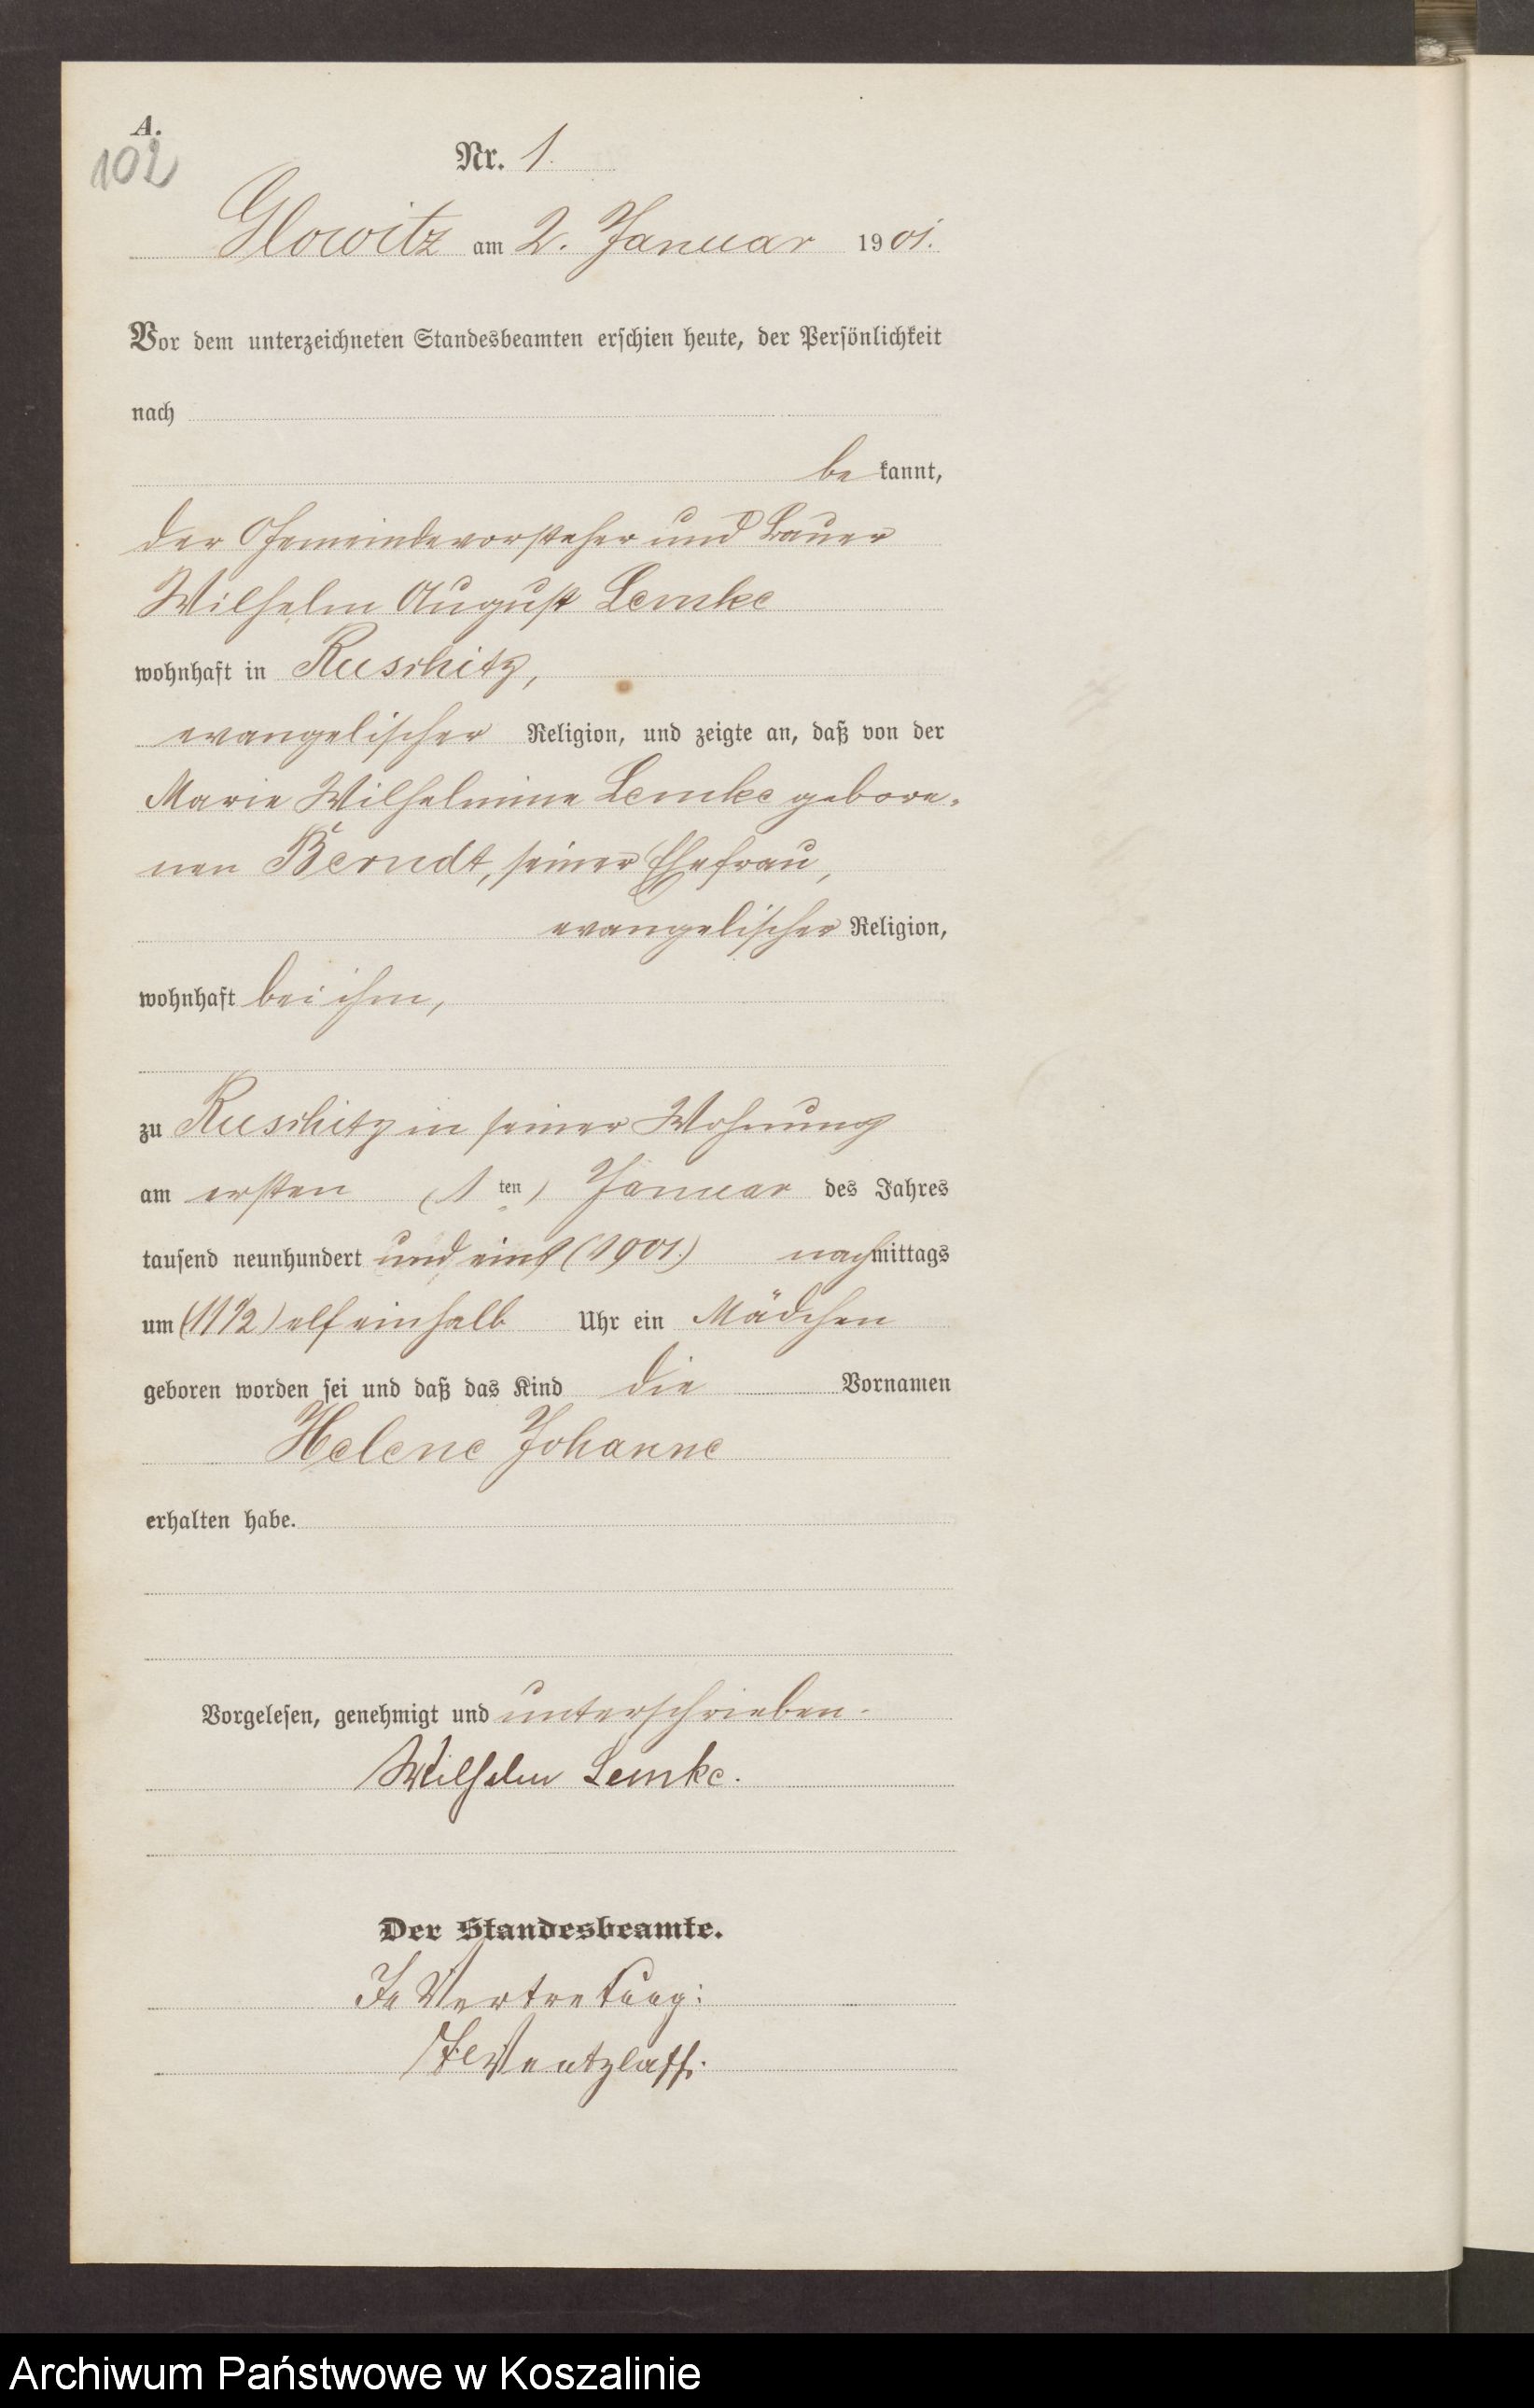 A.
102
Nr. 1.
Glowitz am 2. Januar 1901.
Vor dem unterzeichneten Standesbeamten erschien heute, der Persönlichkeit
nach
bekannt,
der Gemeindevorsteher und Bauer
Wilhelm August Lemke
wohnhaft in Ruschitz,
evangelischer Religion, und zeigte an, daß von der
Marie Wilhelmine Lemke gebore-
nen Berndt, seiner Ehefrau,
evangelischer Religion,
wohnhaft bei ihm,
zu Ruschitz in seiner Wohnung
am ersten (1ten) Januar des Jahres
tausend neunhundert und eins (1901.) nachmittags
um (11 1/2) elfeinhalb Uhr ein Mädchen
geboren worden sei und daß das Kind die Vornamen
Helene Johanne
erhalten habe.
Vorgelesen, genehmigt und unterschrieben.
Wilhelm Lemke.
Der Standesbeamte.
In Vertretung:
Wentzlaff.
Archiwum Państwowe w Koszalinie